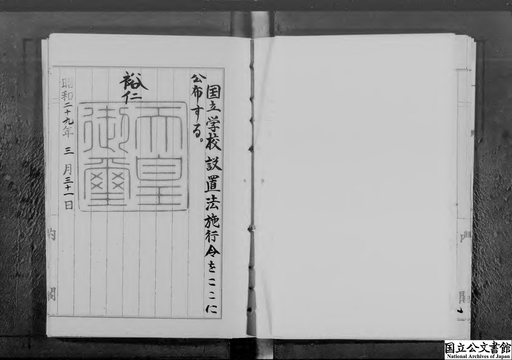 国立学校設置法施行令をここに
公布する。
裕仁
天皇御璽
昭和二十九年三月三十一日
内閣
内閣
国立公文書館
National Archives of Japan